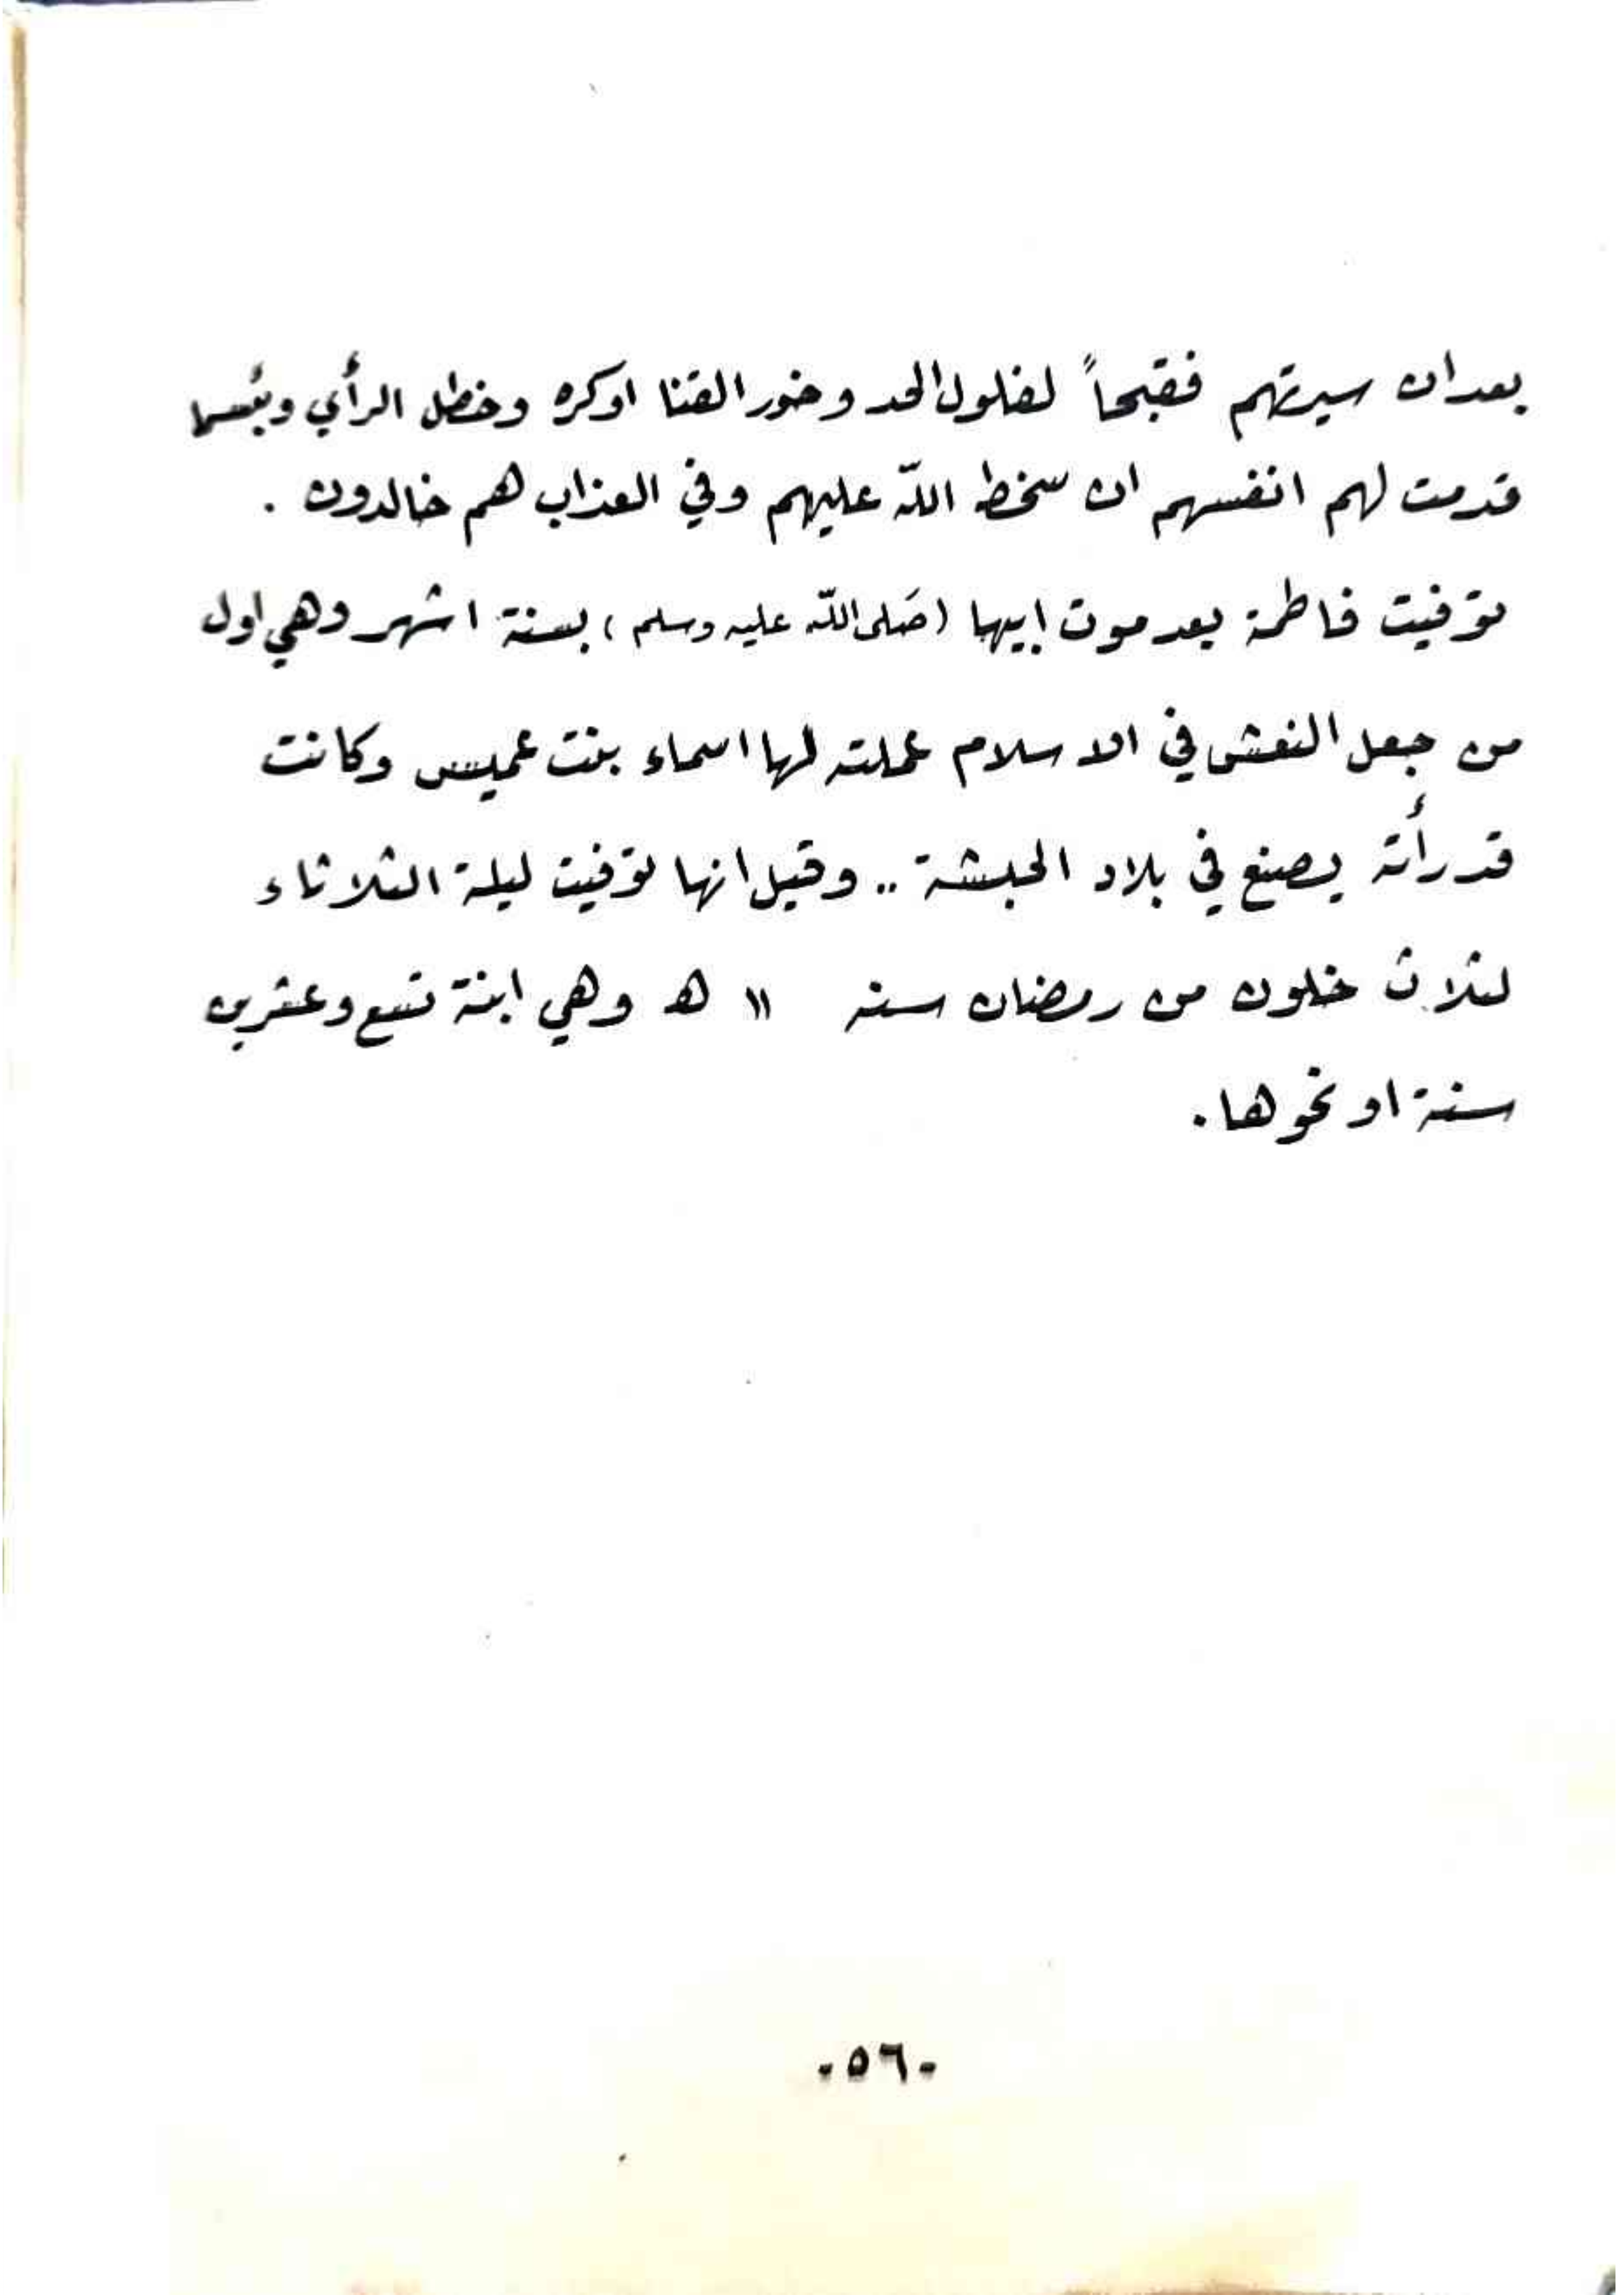 بعد ان سيرتهم فقبحاً لفلول الحد وخور القنا اوكره وخطل الرأي وبئسما
قدمت لهم انفسهم ان سخط اللّه عليهم وفي العذاب هم خالدون .
توفيت فاطمة بعد موت ابيها (صَلى اللّه عليه وسلم) بستة اشهر وهي اول
من جعل النعش في الاسلام عملته لها اسماء بنت عميس وكانت
قد رأته يصنع في بلاد الحبشة .. وقيل انها توفيت ليلة الثلاثاء
لثلاث خلون من رمضان سنه ١١ هـ وهي ابنة تسع وعشرين
سنة او نحوها .
-٥٦-